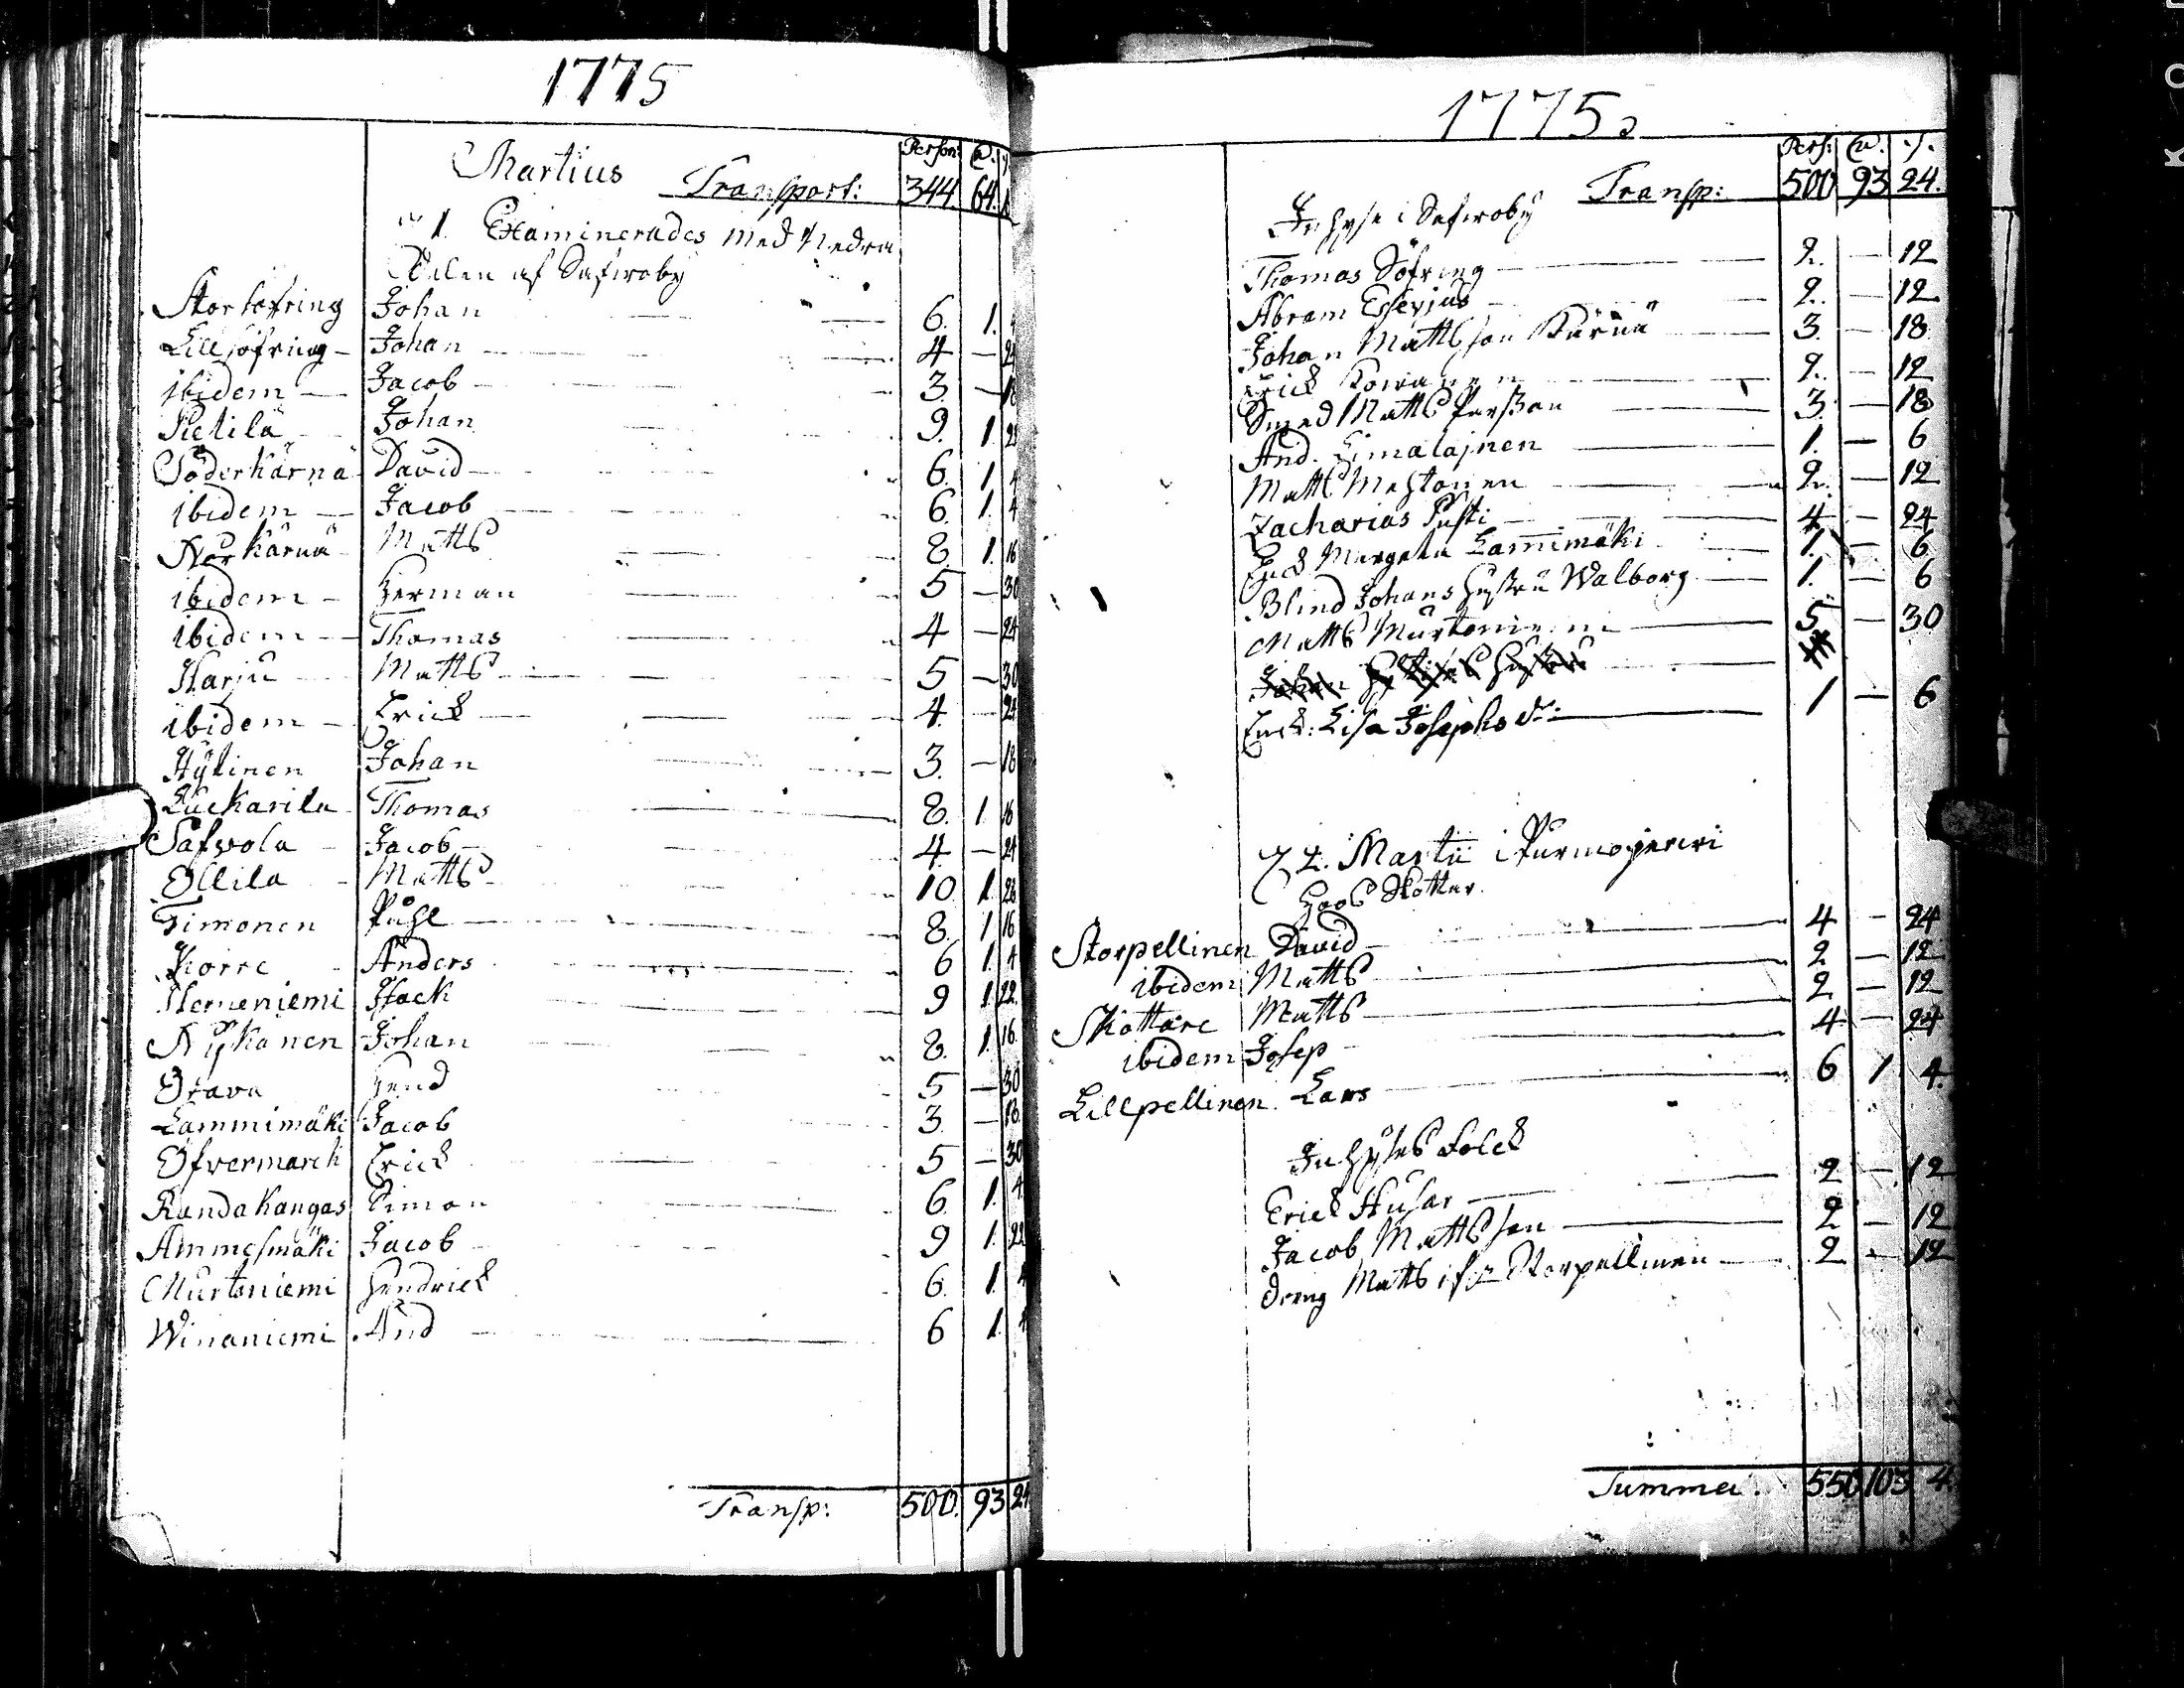 1775
Person: 
Martius Transport: 344. 64.
1. Examinerades med Nedra
Delen af Safwoby
Storsöfring Johan — 6. 1. 4
Lillsöfring – Johan — 4 — 24
ibidem — Jacob — 3. — 18
Pietilä Johan 9. 1. 22
Söderkärnä David — 6. 1. 4
ibidem — Jacob — 6. 1. 4
Norkärnä Matts — 8. 1. 16
ibidem – Herman — 5 — 30
ibidem — Thomas — 4 — 24
Harju Matts — 5 — 30
ibidem – Erick — 4. — 24
Hytinen Johan — 3. — 18
Zackarila Thomas — 8. 1. 16
Safvola Jacob — 4 — 24
Ollila Matts 10. 1. 28
Timonen Påhl — 8. 1 16
Korre Anders 6 1. 4
Hemeniemi Isack 9 1. 22
Nykänen Johan 8. 1. 16
Orava Hend 5 — 30
Lammimäki Jacob 3. — 18
Öfvermarck Erick — 5 — 30
Randakangas Simon 6. 1. 4
Ammesmäki Jacob 9 1. 22
Murtoniemi Hendrick 6. 1. 4
Winaniemi And — 6 1. 4
Transp: 500. 93 24
1775
Pers:
Transp: 500 93 24.
Inhyse i Safwoby
Thomas Söfring — 2. — 12
Abram — 2. — 12
Johan Mattsson Kärnä — 3. — 18
Erick Kowanen — 2. — 12
Smed Matts Persson — 3. — 18
And. Himalajnen — 1. — 6
Matts — 2. — 12
Zacharias — 4 — 24
Enck Margeta Lammimäki — 1. — 6
Blind Johans hustru Walborg — 1. — 6
Matts Murtoniemi — 5 — 30
Johan
Enck: Lisa Josephs dr: — 1 — 6
Martii i Purmojerwi
hos Skottar.
Storpellinen David — 4 — 24
ibidem Matts — 2 — 12
Skottare Matts — 2 — 12
ibidem Josep — 4 — 24
Lillpellinen. Lars — 6 1 4.
Inhyses Folck
Erick Husar — 2 — 12
Jacob Mattsson — 2 — 12
dreng Matts Storpellinen — 2 — 12
Summa. 550 103 4.